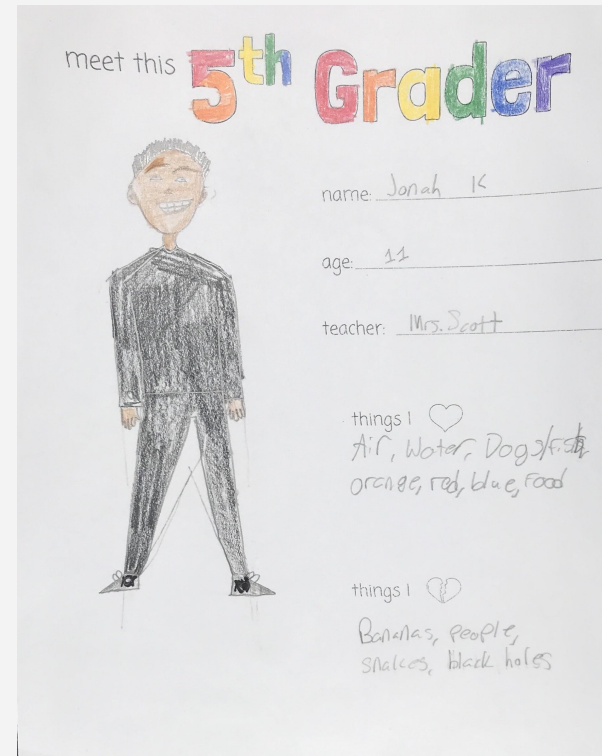 meet this 5th Grader
name: Jonah K
age: 11
teacher: Mrs. Scott
things I
Air, Water, Dogs/fish
orange, red, blue, Food
things I
Bananas, people,
snakes, black holes